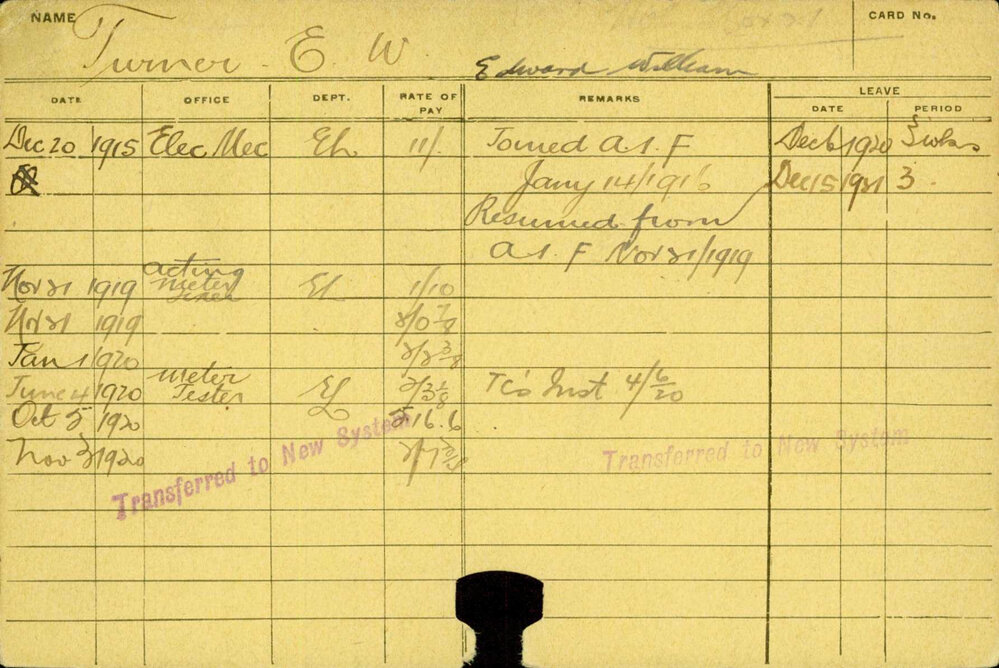 NAME
CARD No.
Turner - E. W.
Edward William
DATE OFFICE DEPT. RATE OF PAY REMARKS LEAVE
DATE PERIOD
Dec 20 1915 Elec Mec EL 11/- Joined A.I.F Dec 6 1920 3 wks
Jany 14/1916 Dec 15 1921 3
Resumed from
A.I.F Nov 21/1919
Nov 21 1919 acting meter EL 1/10
Nov 21 1919 2/0 7/8
Jan 1 1920 2/2 3/8
June 4 1920 meter Tester EL 2/3 1/8 TC's Inst 4/6/20
Oct 5 1920 5.16.6
Nov 3 1920
Transferred to New System
Transferred to New System